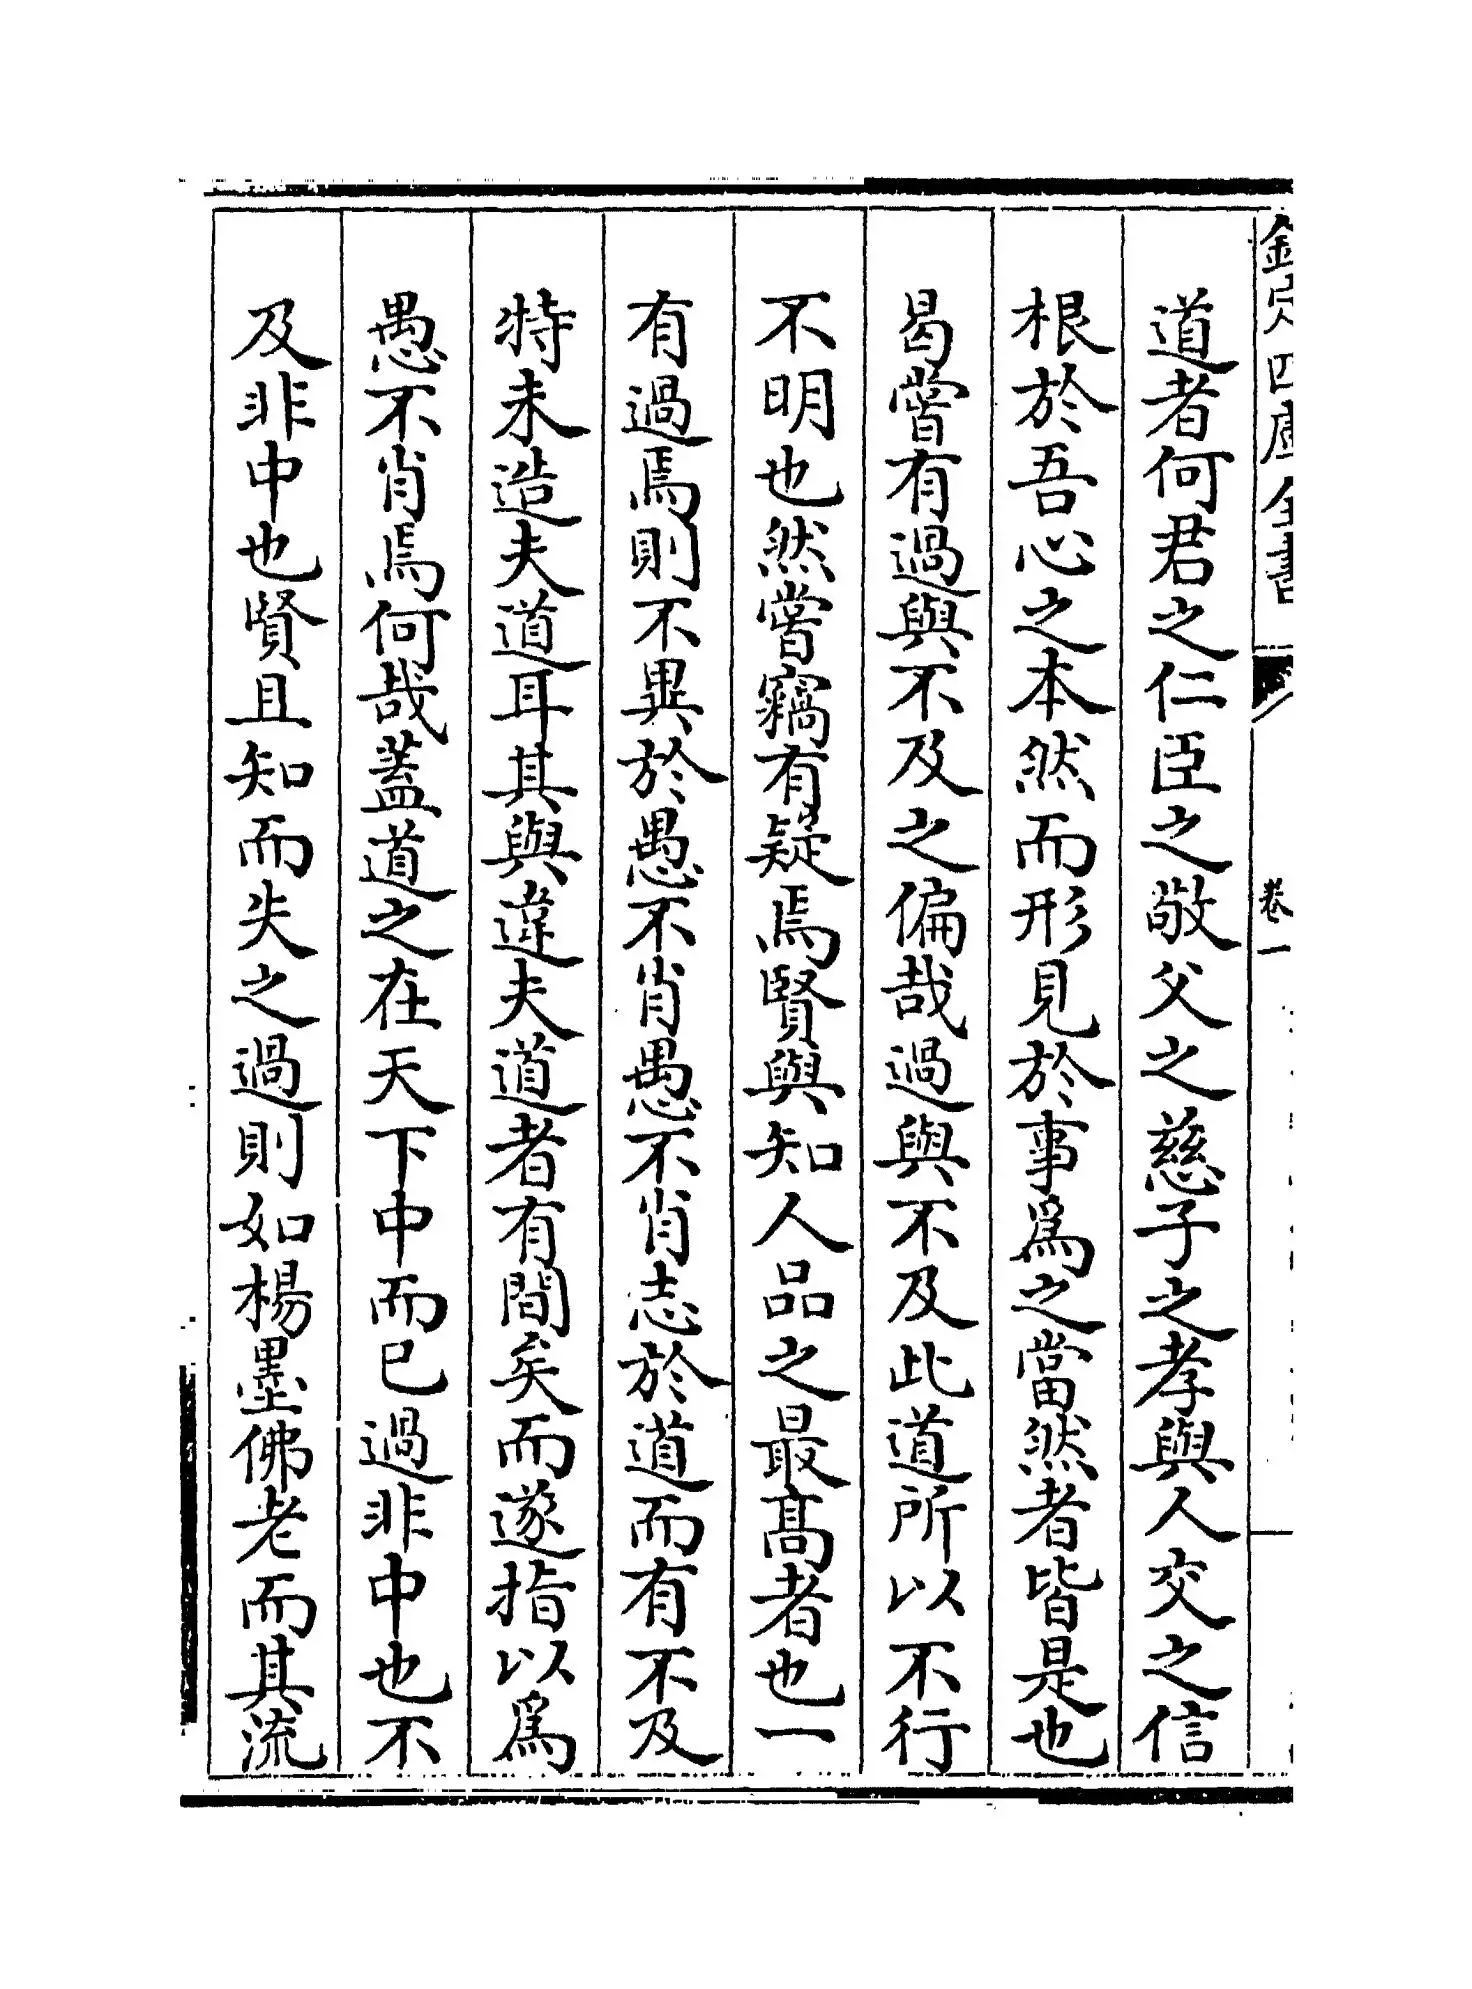 欽定四庫全書
卷一
道者何君之仁臣之敬父之慈子之孝與人交之信
根於吾心之本然而形見於事爲之當然者皆是也
曷嘗有過與不及之偏哉過與不及此道所以不行
不明也然嘗竊有疑焉賢與知人品之最高者也一
有過焉則不異於愚不肖愚不肖志於道而有不及
特未造夫道耳其與違夫道者有間矣而遂指以爲
愚不肖焉何哉蓋道之在天下中而已過非中也不
及非中也賢且知而失之過則如楊墨佛老而其流